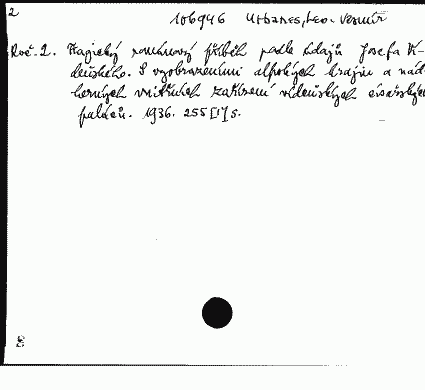 2
106946 Urbanes, Leo. Vesmír
Roč. 2. Tragický románový příběh podle údajů Josefa Ví-
deňského. S vyobrazeními alpských krajin a nád-
herných vnitřních zařízení vídeňských císařských
paláců. 1936. 255 [1] s.